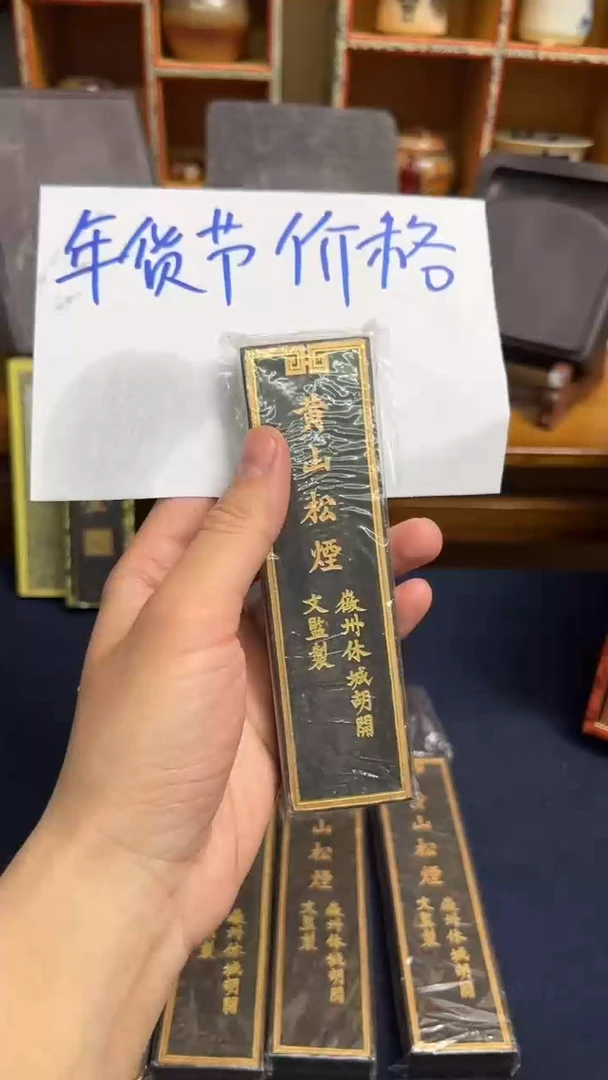 年货节价格
黄山松煙
徽州休城胡開
文監製
山松煙
徽州休城胡開
文監製
黄山松煙
徽州休城胡開
文監製
徽州休城胡開